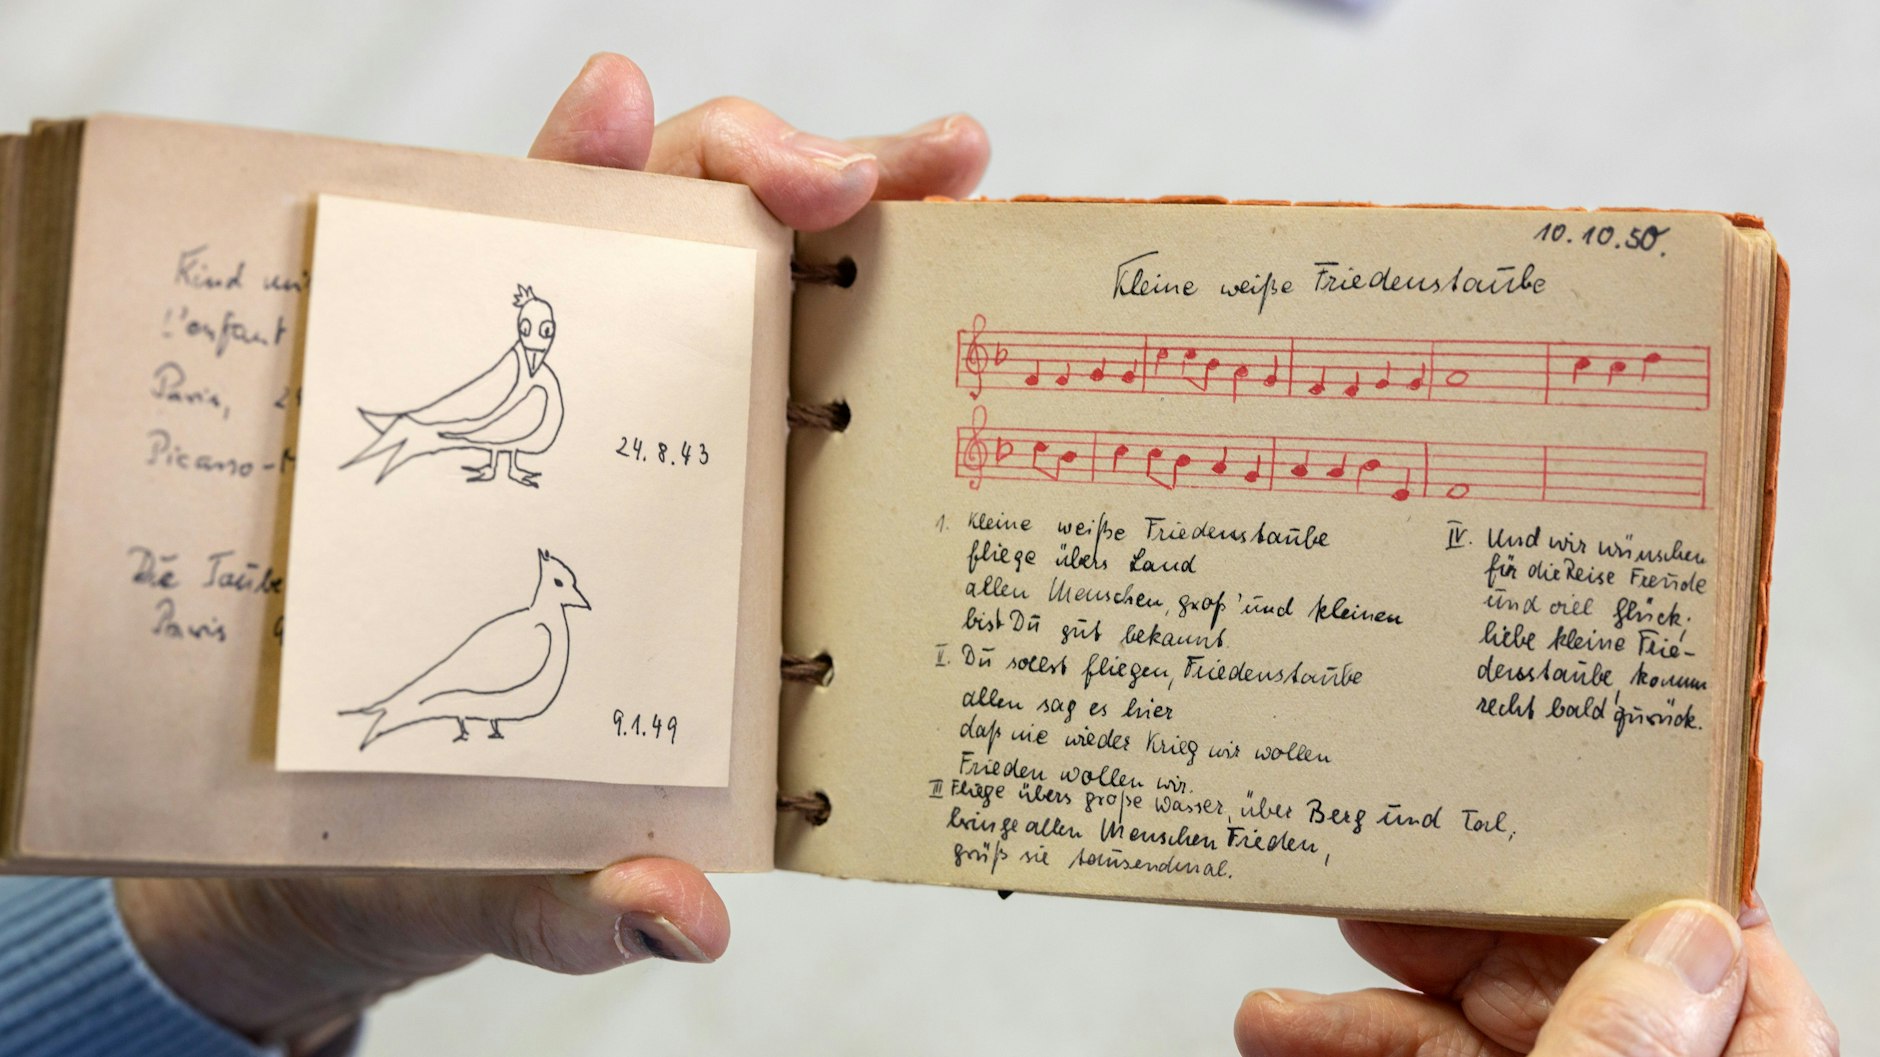 Kind mi
L'enfant
Paris, 2
Picasso-M
Die Taube
Paris 9
24.8.43
9.1.49
10.10.50.
Kleine weiße Friedenstaube
1. Kleine weiße Friedenstaube
fliege übers Land
allen Menschen, groß' und kleinen
bist Du gut bekannt.
II. Du sollst fliegen, Friedenstaube
allen sag es hier
daß nie wieder Krieg wir wollen
Frieden wollen wir.
III Fliege übers große Wasser, über Berg und Tal,
bringe allen Menschen Frieden,
grüß sie tausendmal.
IV. Und wir wünschen
für die Reise Freude
und viel Glück,
liebe kleine Frie-
densstaube, komm
recht bald zurück.